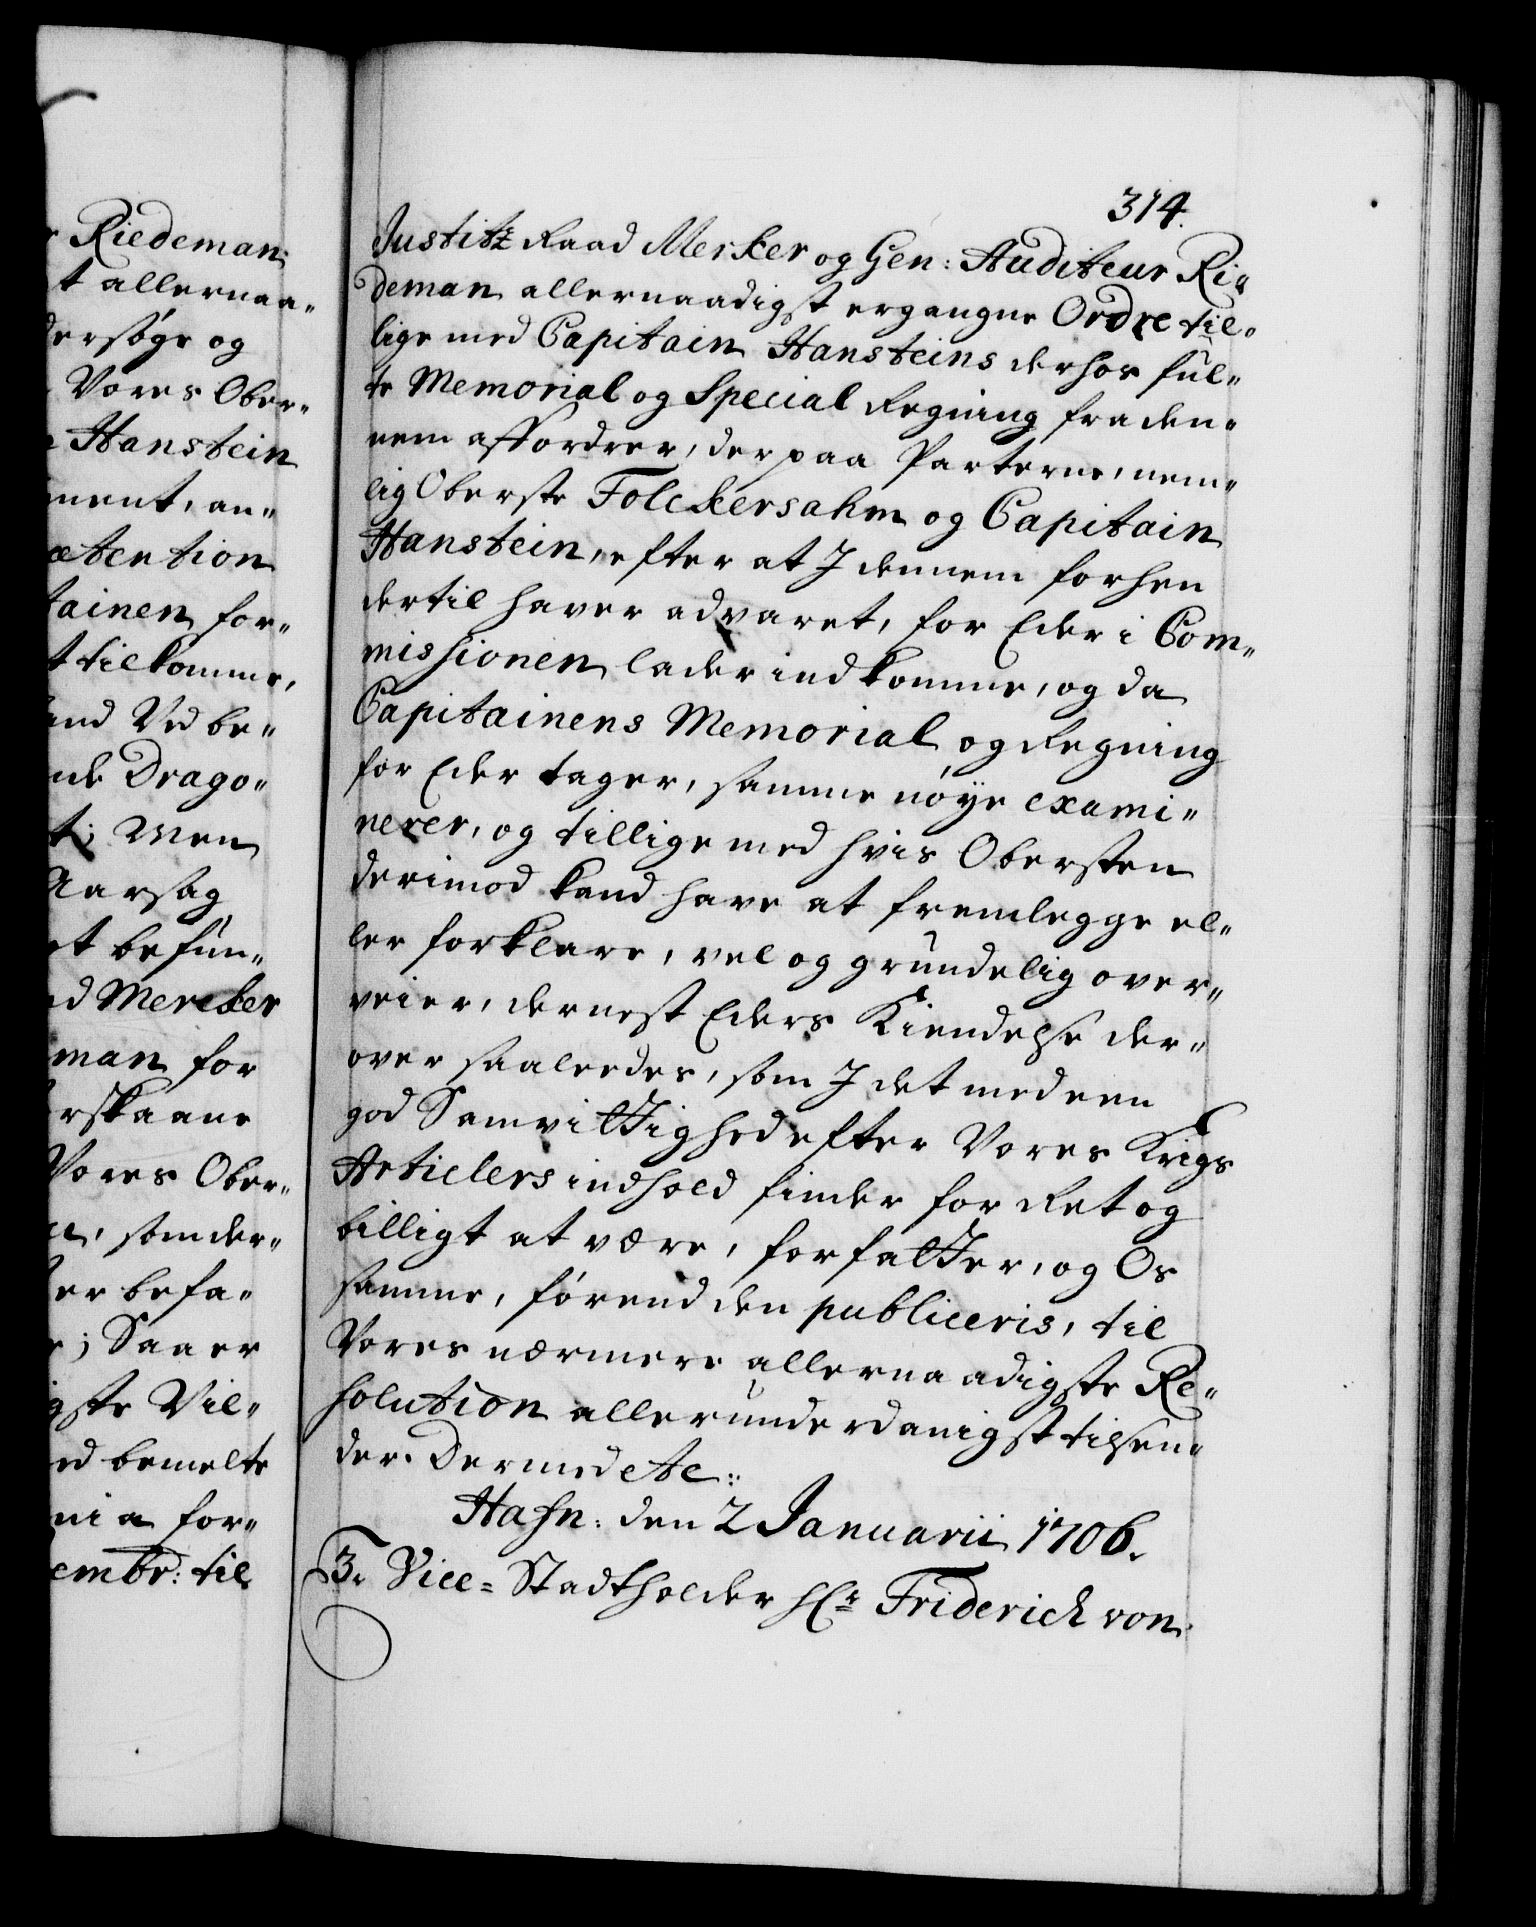 r Riedeman
t allernaa„
dersøge og
Vores Ober„
e Hanstein
ment, an„
ætention
tainen for„
t tilkomme,
and Ved be„
nde Drago„
t; Men
Aarsag
et befun„
ad Mercker
man for
erskaane
Vores Ober„
n, som der„
er befa„
r; Saa er
igste Vil„
ed bemelte
nia for„
embr: til
314.
Justitz Raad Merker og Gen: Auditeur Ri„
deman allernaadigst ergangne Ordre til„
lige med Capitain Hansteins derhos ful„
te Memorial og Special Regning fra den„
nem affordrer, der paa Parterne, nem„
lig Oberste Folckersahm og Capitain
Hanstein, efter at I dennem forhen
dertil haver advaret, for Eder i Com„
missionen lader indkomme, og da
Capitainens Memorial og Regning
for Eder tager, samme nøye exami„
nerer, og tillige med hvis Obersten
derimod kand have at fremlegge el„
ler forklare, vel og grundelig over„
veier, dernest Eders Kiendelse der„
over saaledes, som I det med een
god Samvittighed efter Vores Krigs
Articlers indhold finder for Ret og
billigt at være, forfatter, og Os
samme, førend den publiceris, til
Vores nærmere allernaadigste Re„
solution allerunderdanigst tilsen„
der. Dermed etc:
Hafn: den 2 Januarii 1706.
3. Vice= Stadtholder Hr Friderich von